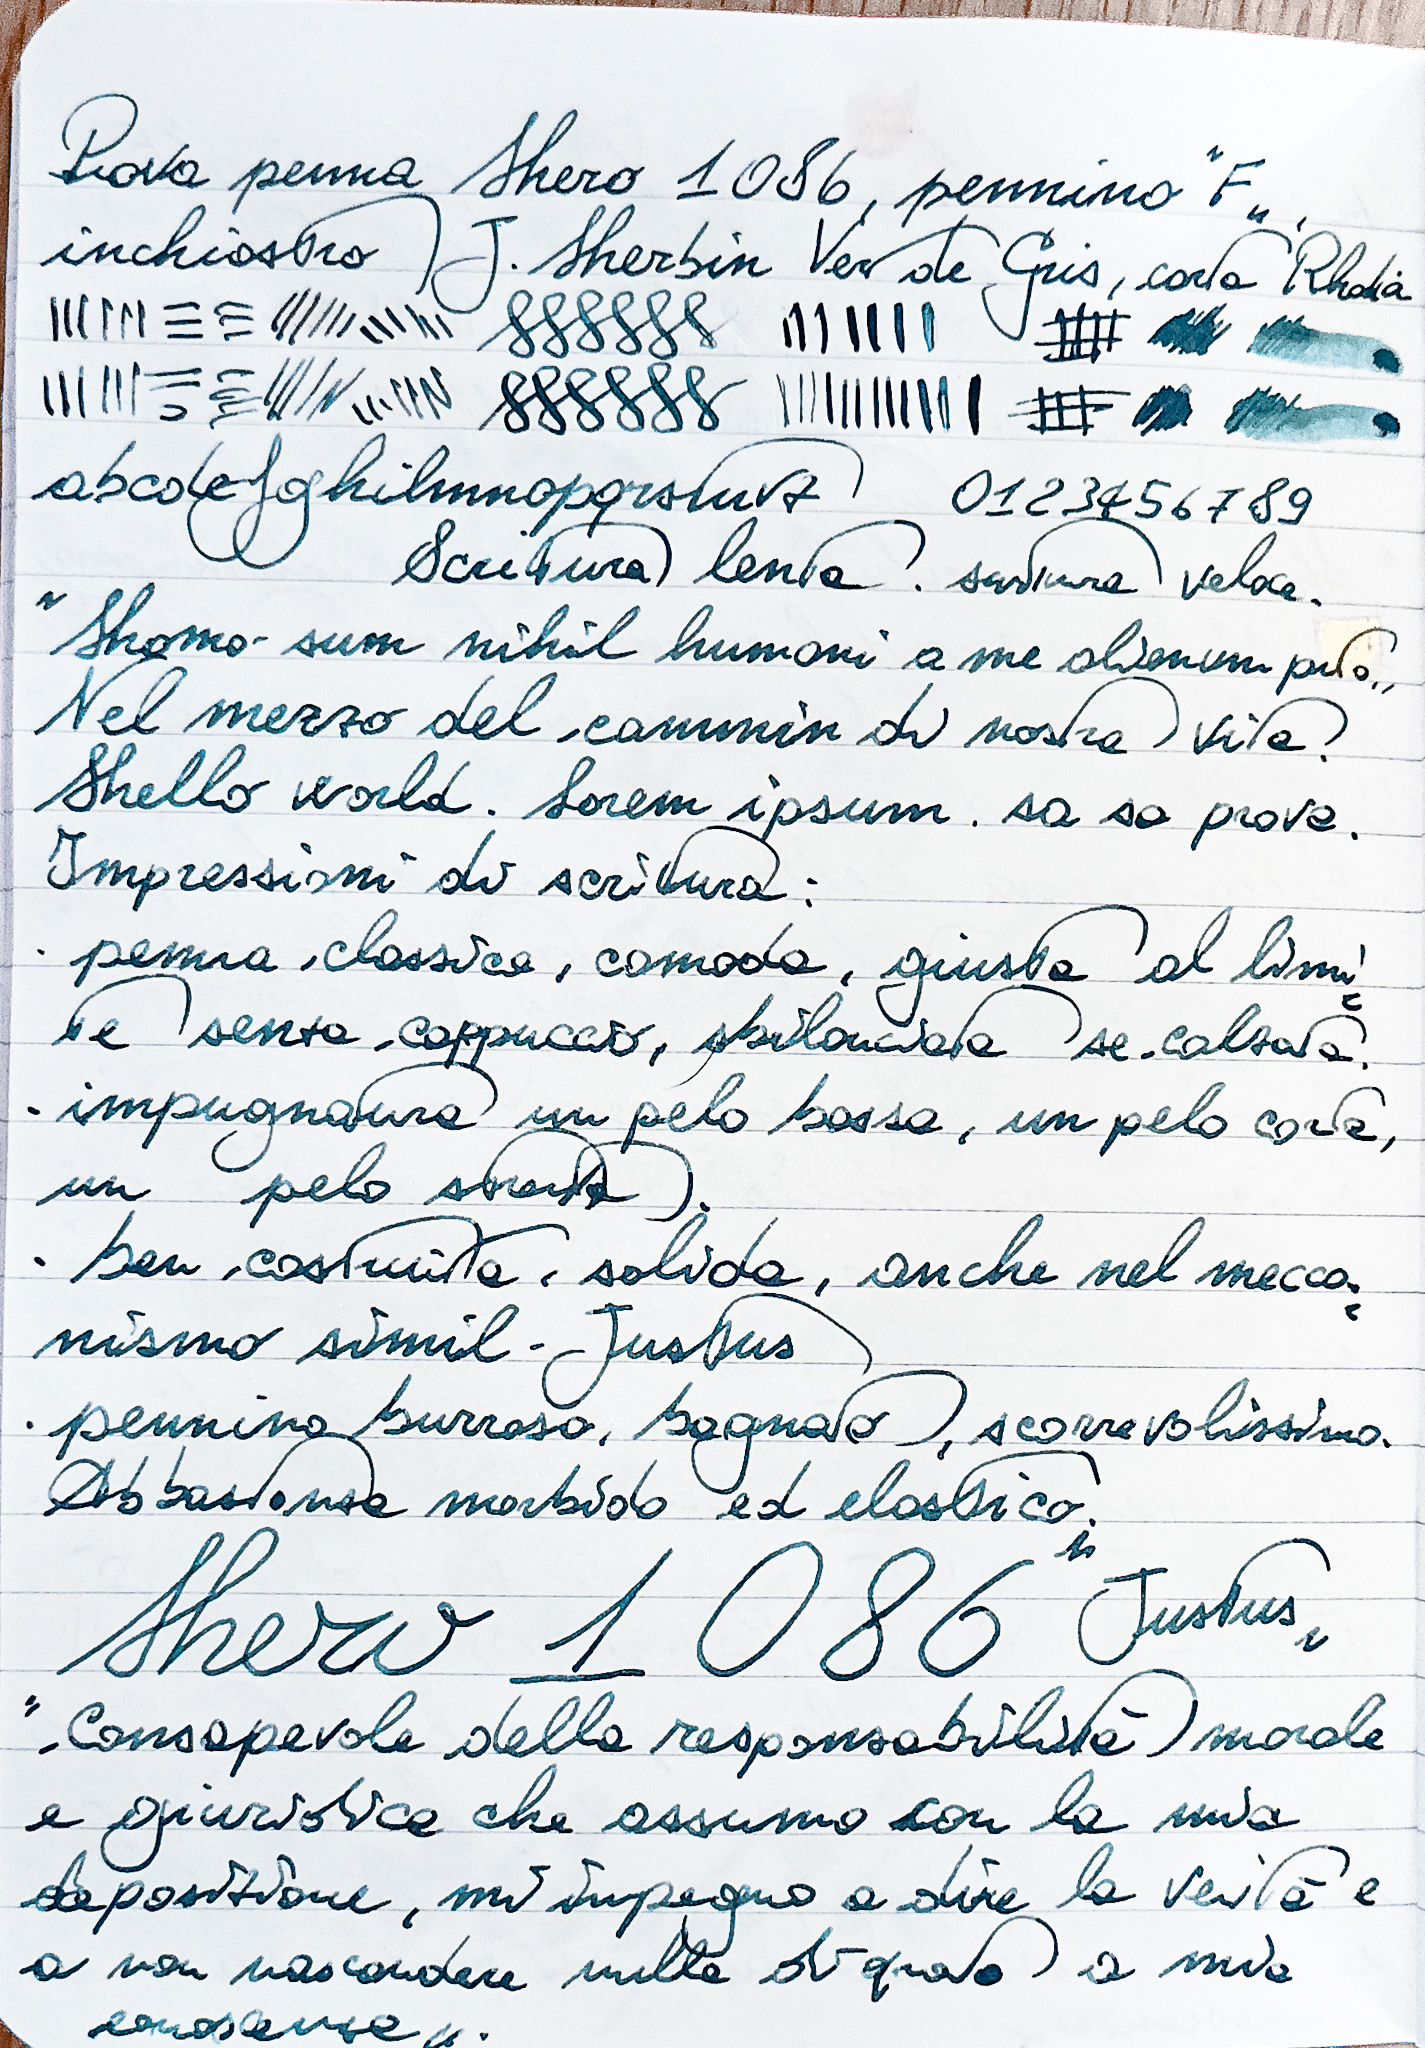 Prova penna Hero 1086, pennino "F",
inchiostro J. Herbin Vert de Gris, carta Rhodia
abcdefghilmnopqrstuvz 0123456789
Scrittura lenta. scrittura veloce.
"Homo sum nihil humani a me alienum puto"
Nel mezzo del cammin di nostra vita.
Hello world. Lorem ipsum. sa sa prova.
Impressioni di scrittura:
. penna classica, comoda, giusta al limi-
te senza cappuccio, sbilanciata se calzata.
. impugnatura un pelo bassa, un pelo corta,
un pelo stretta.
. ben costruita, solida, anche nel mecca-
nismo simil-Justus
. pennino burroso, bagnato, scorrevolissimo.
Abbastanza morbido ed elastico.
Hero 1086 "Justus"
"Consapevole della responsabilità morale
e giuridica che assumo con la mia
deposizione, mi impegno a dire la verità e
a non nascondere nulla di quato a mia
conoscenza".